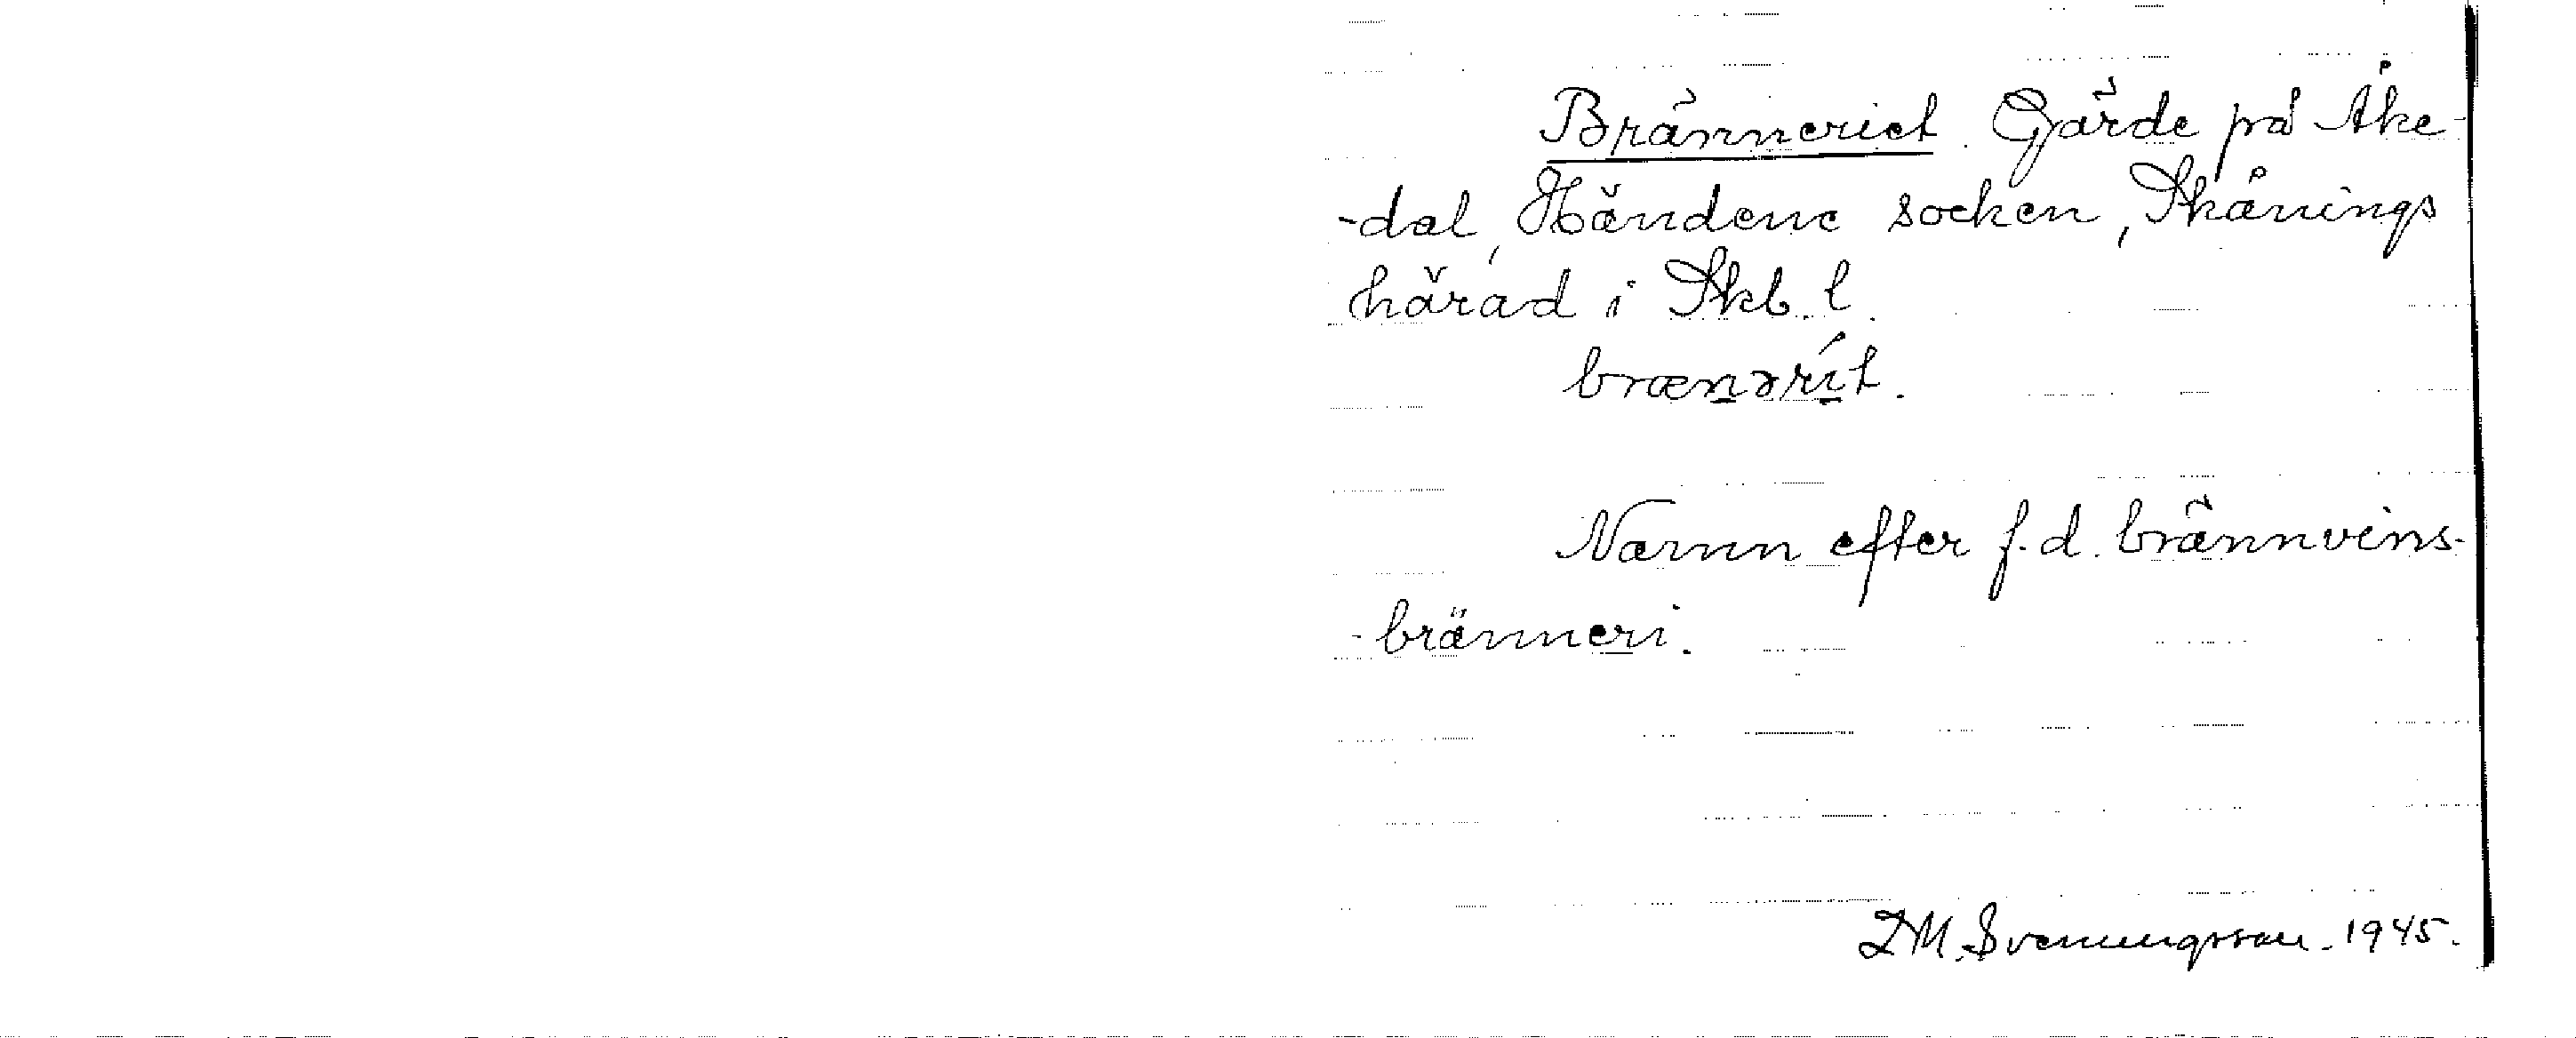 Bränneriet. Gärde på Åke-
-dal, Händene socken, Skånings
härad i Skb. l.
brænərít.
Namn efter f.d. brännvins-
-bränneri.
D.M. Svenungsson. 1945.